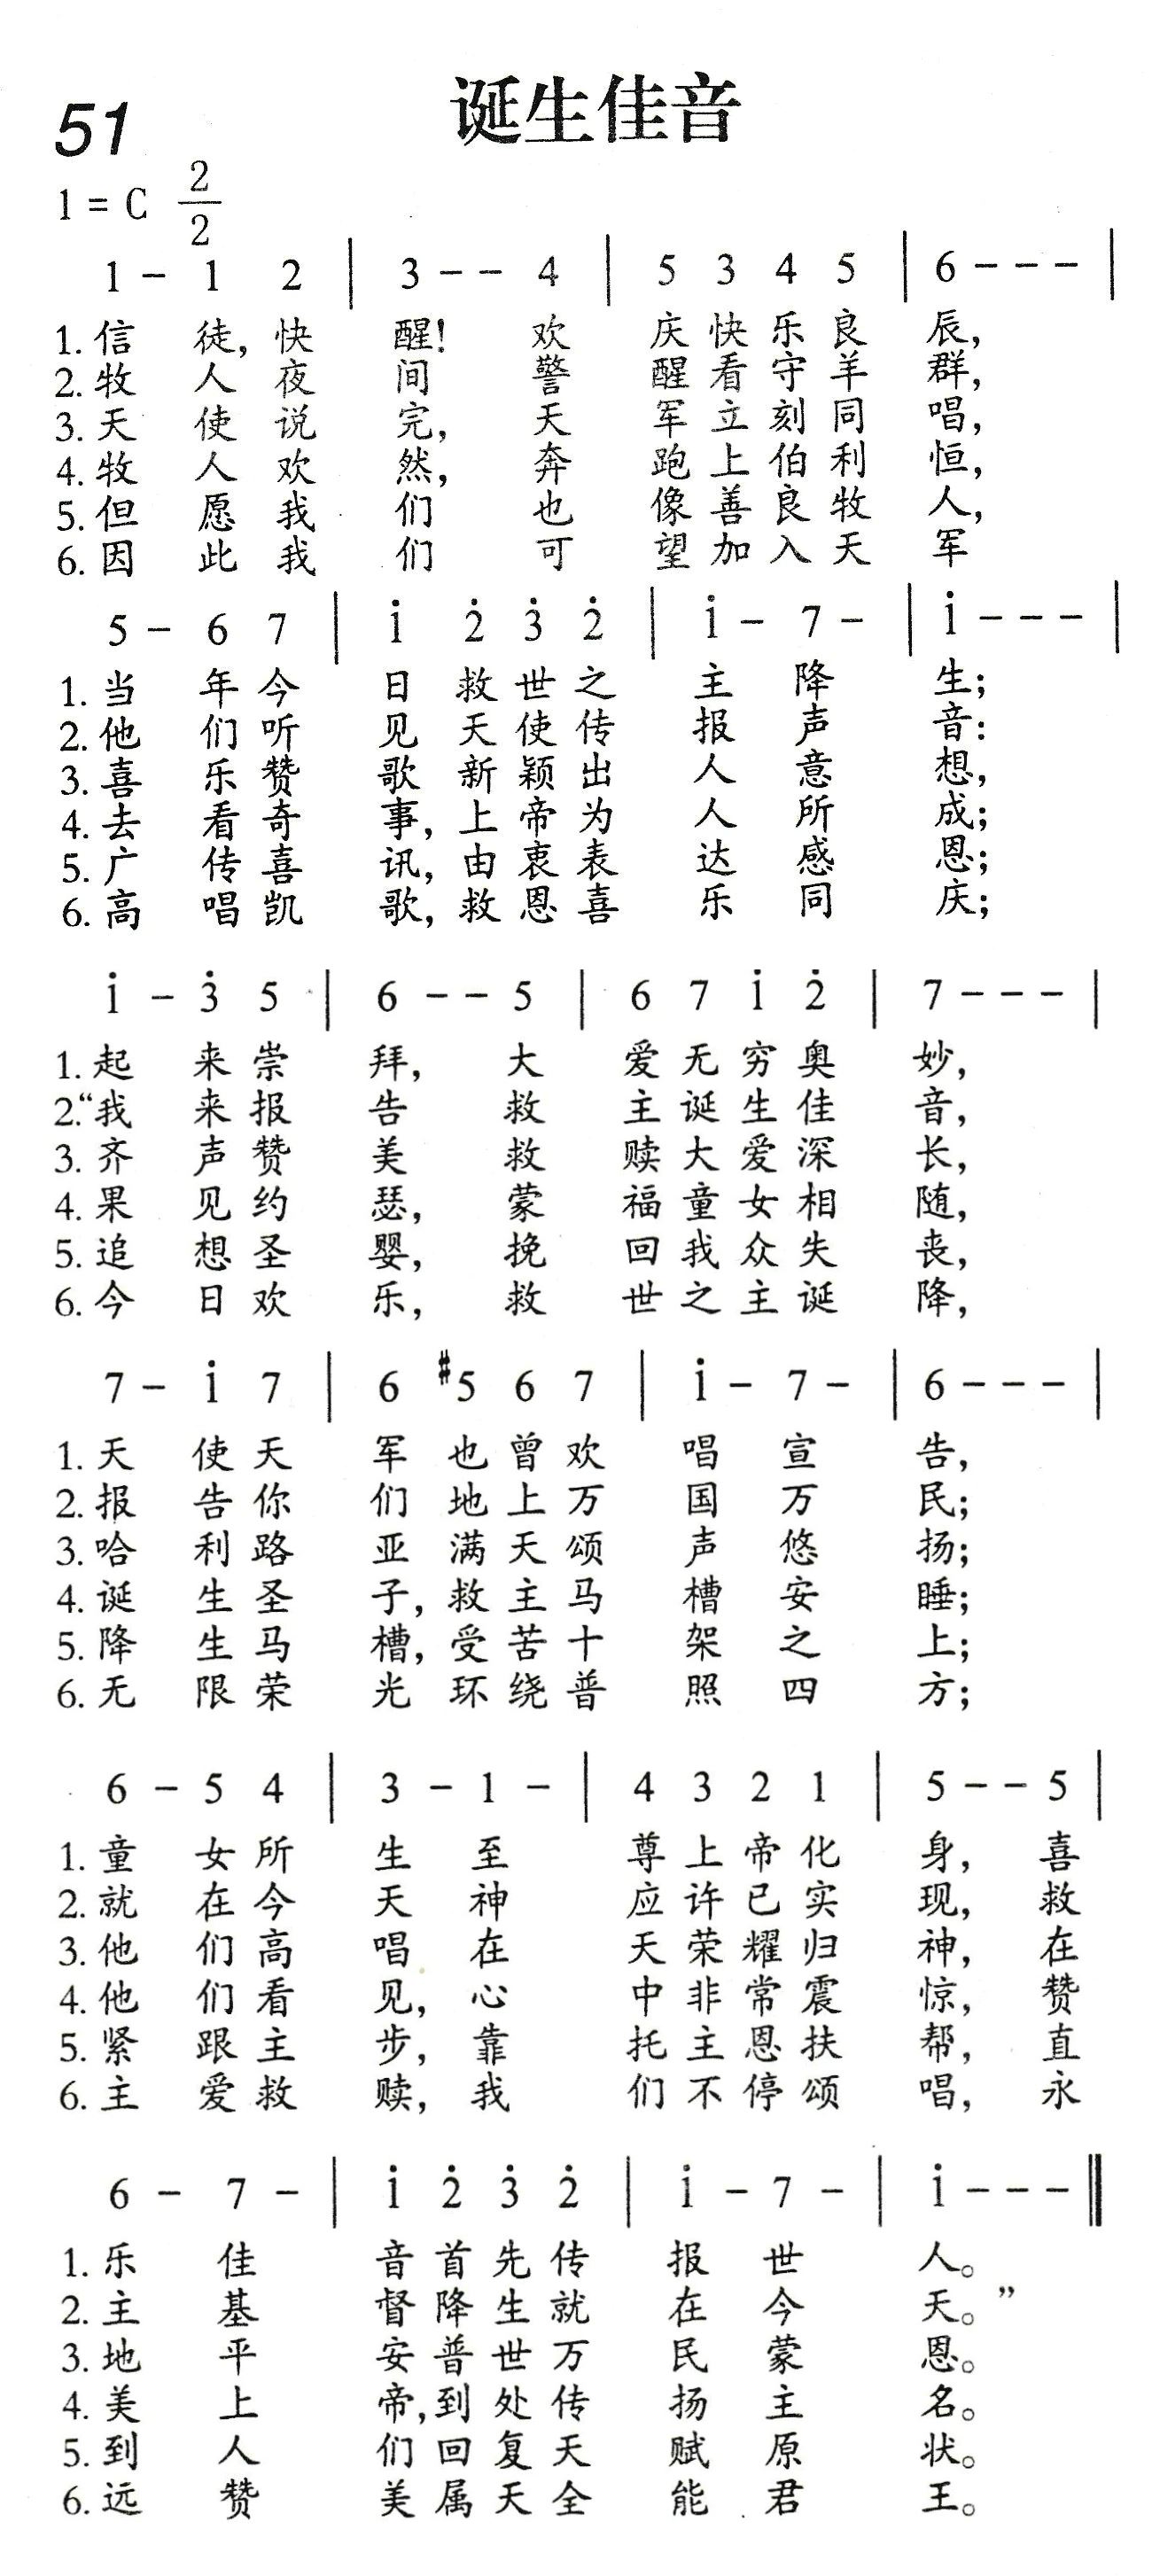 51
诞生佳音
1 = C 2/2
1 – 1 2 | 3 – – 4 | 5 3 4 5 | 6 – – – |
1. 信徒,快醒!欢庆快乐良辰,
2. 牧人夜间警醒看守羊群,
3. 天使说完,天军立刻同唱,
4. 牧人欢然,奔跑上伯利恒,
5. 但愿我们也像善良牧人,
6. 因此我们可望加入天军
5 – 6 7 | i 2̇ 3̇ 2̇ | i – 7 – | i – – – |
1. 当年今日救世之主降生;
2. 他们听见天使传报声音:
3. 喜乐赞歌新颖出人意想,
4. 去看奇事,上帝为人所成;
5. 广传喜讯,由衷表达感恩;
6. 高唱凯歌,救恩喜乐同庆;
i – 3̇ 5 | 6 – – 5 | 6 7 i 2̇ | 7 – – – |
1. 起来崇拜,大爱无穷奥妙,
2.“我来报告救主诞生佳音,
3. 齐声赞美救赎大爱深长,
4. 果见约瑟,蒙福童女相随,
5. 追想圣婴,挽回我众失丧,
6. 今日欢乐,救世之主诞降,
7 – i 7 | 6 #5 6 7 | i – 7 – | 6 – – – |
1. 天使天军也曾欢唱宣告,
2. 报告你们地上万国万民;
3. 哈利路亚满天颂声悠扬;
4. 诞生圣子,救主马槽安睡;
5. 降生马槽,受苦十架之上;
6. 无限荣光环绕普照四方;
6 – 5 4 | 3 – 1 – | 4 3 2 1 | 5 – – 5 |
1. 童女所生至尊上帝化身,喜
2. 就在今天神应许已实现,救
3. 他们高唱在天荣耀归神,在
4. 他们看见,心中非常震惊,赞
5. 紧跟主步,靠托主恩扶帮,直
6. 主爱救赎,我们不停颂唱,永
6 – 7 – | i 2̇ 3̇ 2̇ | i – 7 – | i – – – ‖
1. 乐佳音首先传报世人。
2. 主基督降生就在今天。”
3. 地平安普世万民蒙恩。
4. 美上帝,到处传扬主名。
5. 到人们回复天赋原状。
6. 远赞美属天全能君王。